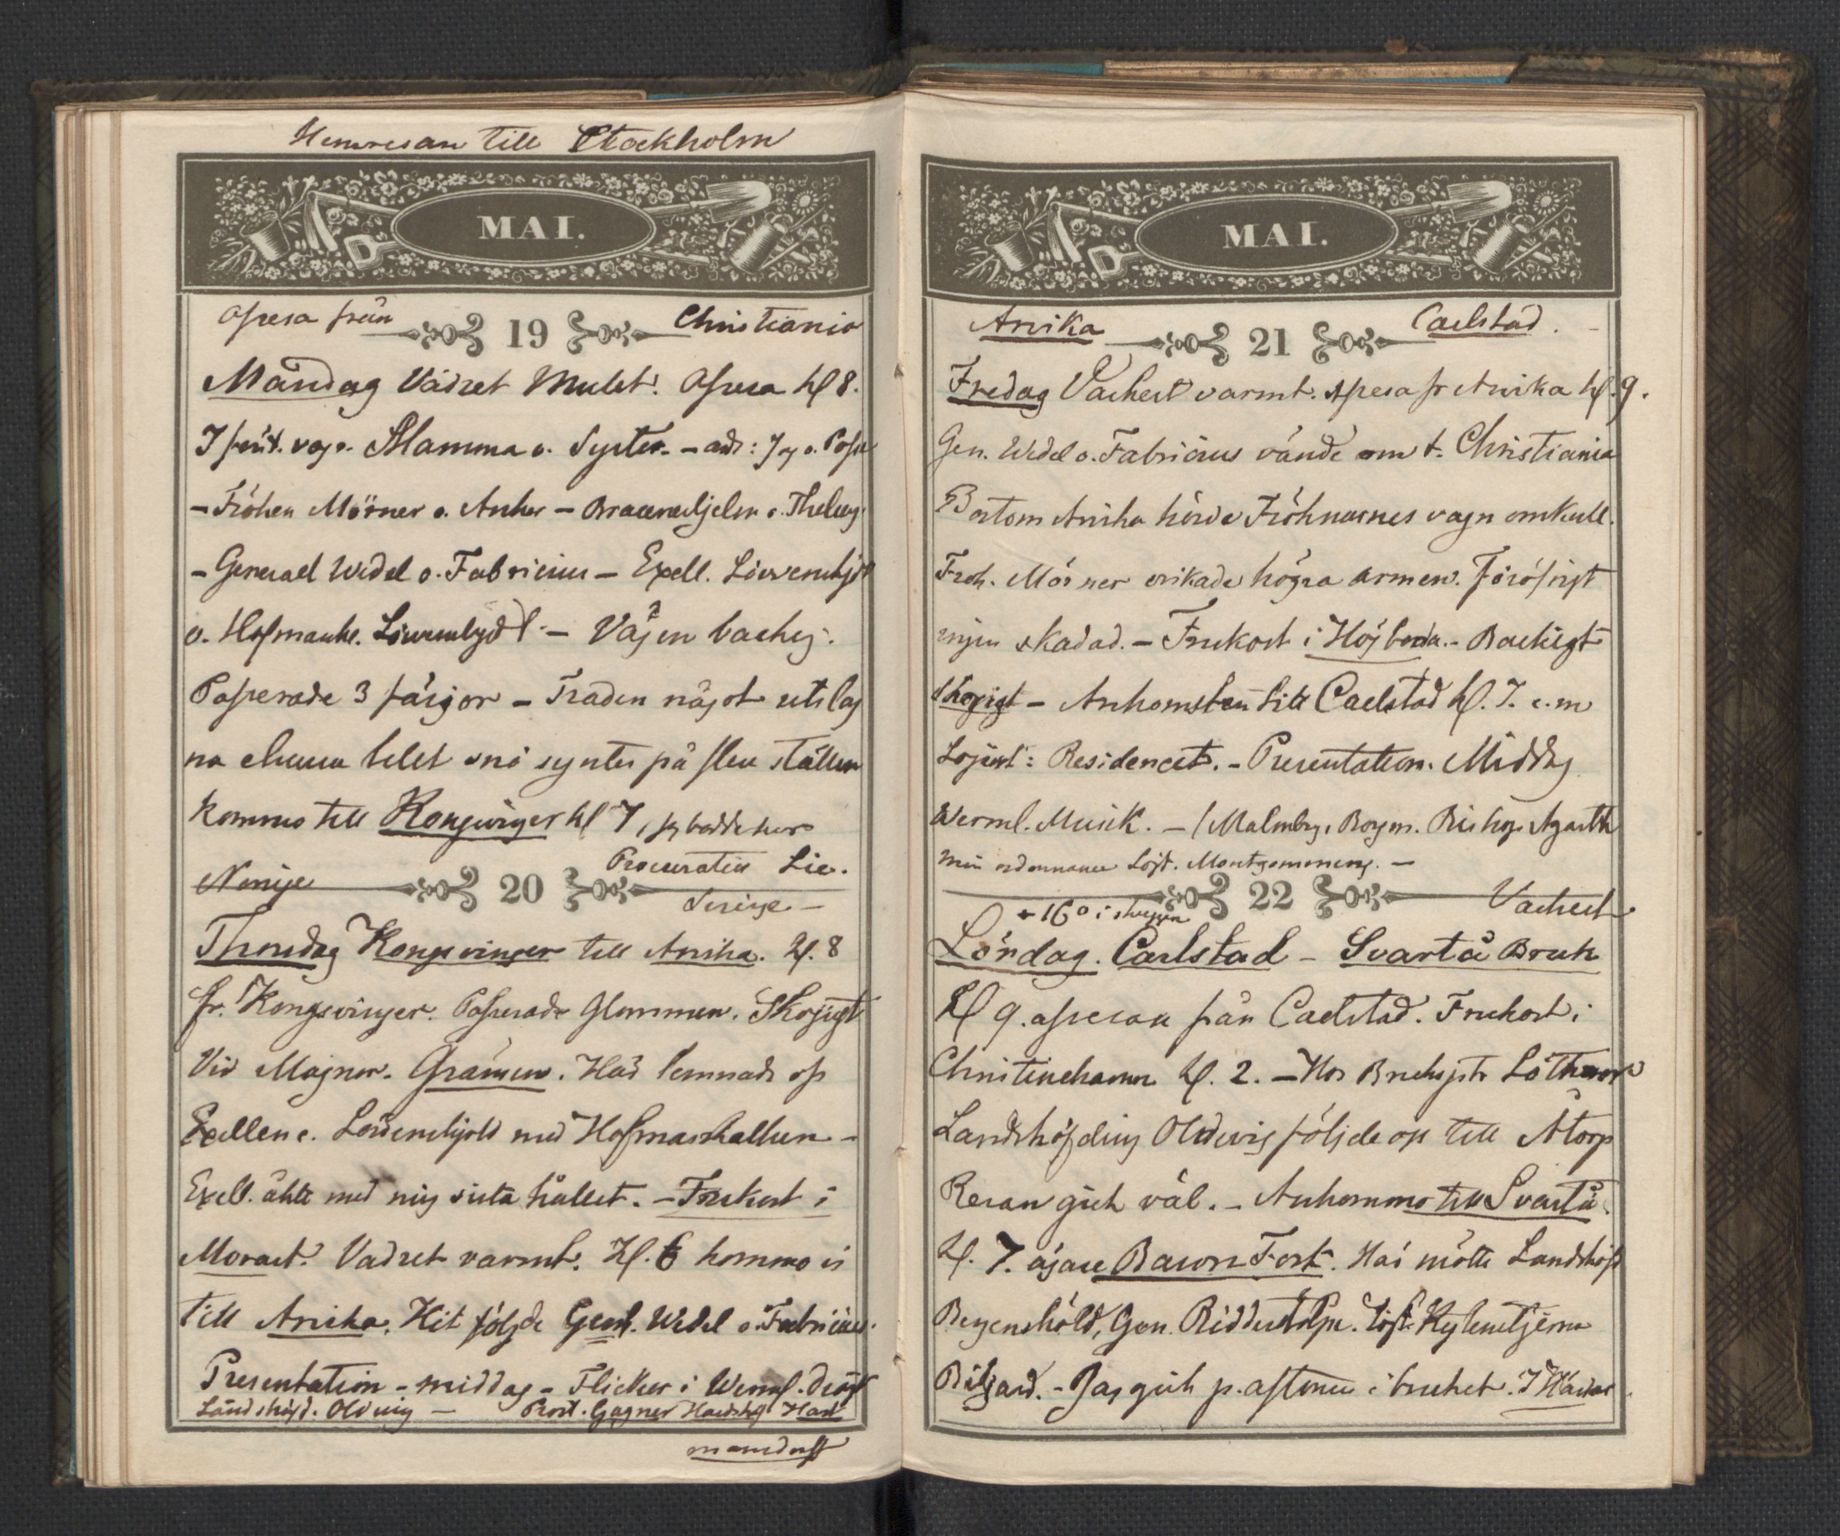 Hemresan till Stockholm
MAI.
Afresa från 19 Christiania
Måndag Vädret Mulet. Afresa Kl 8.
I förut. vagn. Mamma o. Syster. – and: Jag o. Pose
– Fröken Mörner o. Anker – Braunerhjelm o. Theleny.
– General Wedel o. Fabricius – Exell. Lövenskjöld
o. Hofmarsk. Lövenskjöld – Vägen backig.
Passerade 3 färjor – Träden något utslag
na ehuru litet snö syntes på flera ställen
kommo till Kongsvinger kl 7, jag bodde hos
Procurateur Lie.
Norrige 20 Sverige –
Thorsdag Kongsvinger till Arvika. Kl. 8
fr. Kongsvinger. Passerade Glommen. Skogigt
Vid Magnor. Gränsen. Här lemnade oss
Exellenc. Lövenskjold med Hofmarskalken –
Exell. åkte med mig sista hållet. – Frukost i
Morast. Vädret varmt. Kl. 6 kommo vi
till Arvika. Hit följde Genl. Wedel o. Fabricius.
Presentation – middag – Flickor i Werml. drägt
Landshöfd. Oldvig – Prost. Gagner Häradshöf Hast
mansdorff
MAI.
Arvika 21 Carlstad.
Fredag Vackert varmt. Afresa fr Arvika kl. 9.
Gen. Wedel o. Fabricius vände om t. Christiania
Bortom Arvika körde Fröknarnes vagn omkull.
Frök. Mörner vrikade högra armen. Föröfrigt
ingen skadad. – Frukost i Högboda. – Backigt
Skogigt – Ankomsten till Carlstad kl. 7. e.m
Logerat: Residencet. – Presentation. Middag
Werml. Musik. – (Malmborg, Boyen. Biskop Agardh
Min ordonnance Löjt. Montgommery. –
+ 16° i skuggan 22 Vackert
Lördag. Carlstad – Svartå Bruk
Kl 9. afresan från Carlstad. Frukost i
Christinehamn Kl. 2. – Hos Bruksptr Lothman
Landshöfding Oldevig följde oss till Åtorp
Resan gick väl. – Ankommo till Svartå.
Kl. 7. ägare Baron Fock. Här mötte Landshöfd
Bergensköld, Gen. Ridderstolpe. Löjt. Kylenstjerna
Biljard. – Jag gick p. aftonen i bruket.